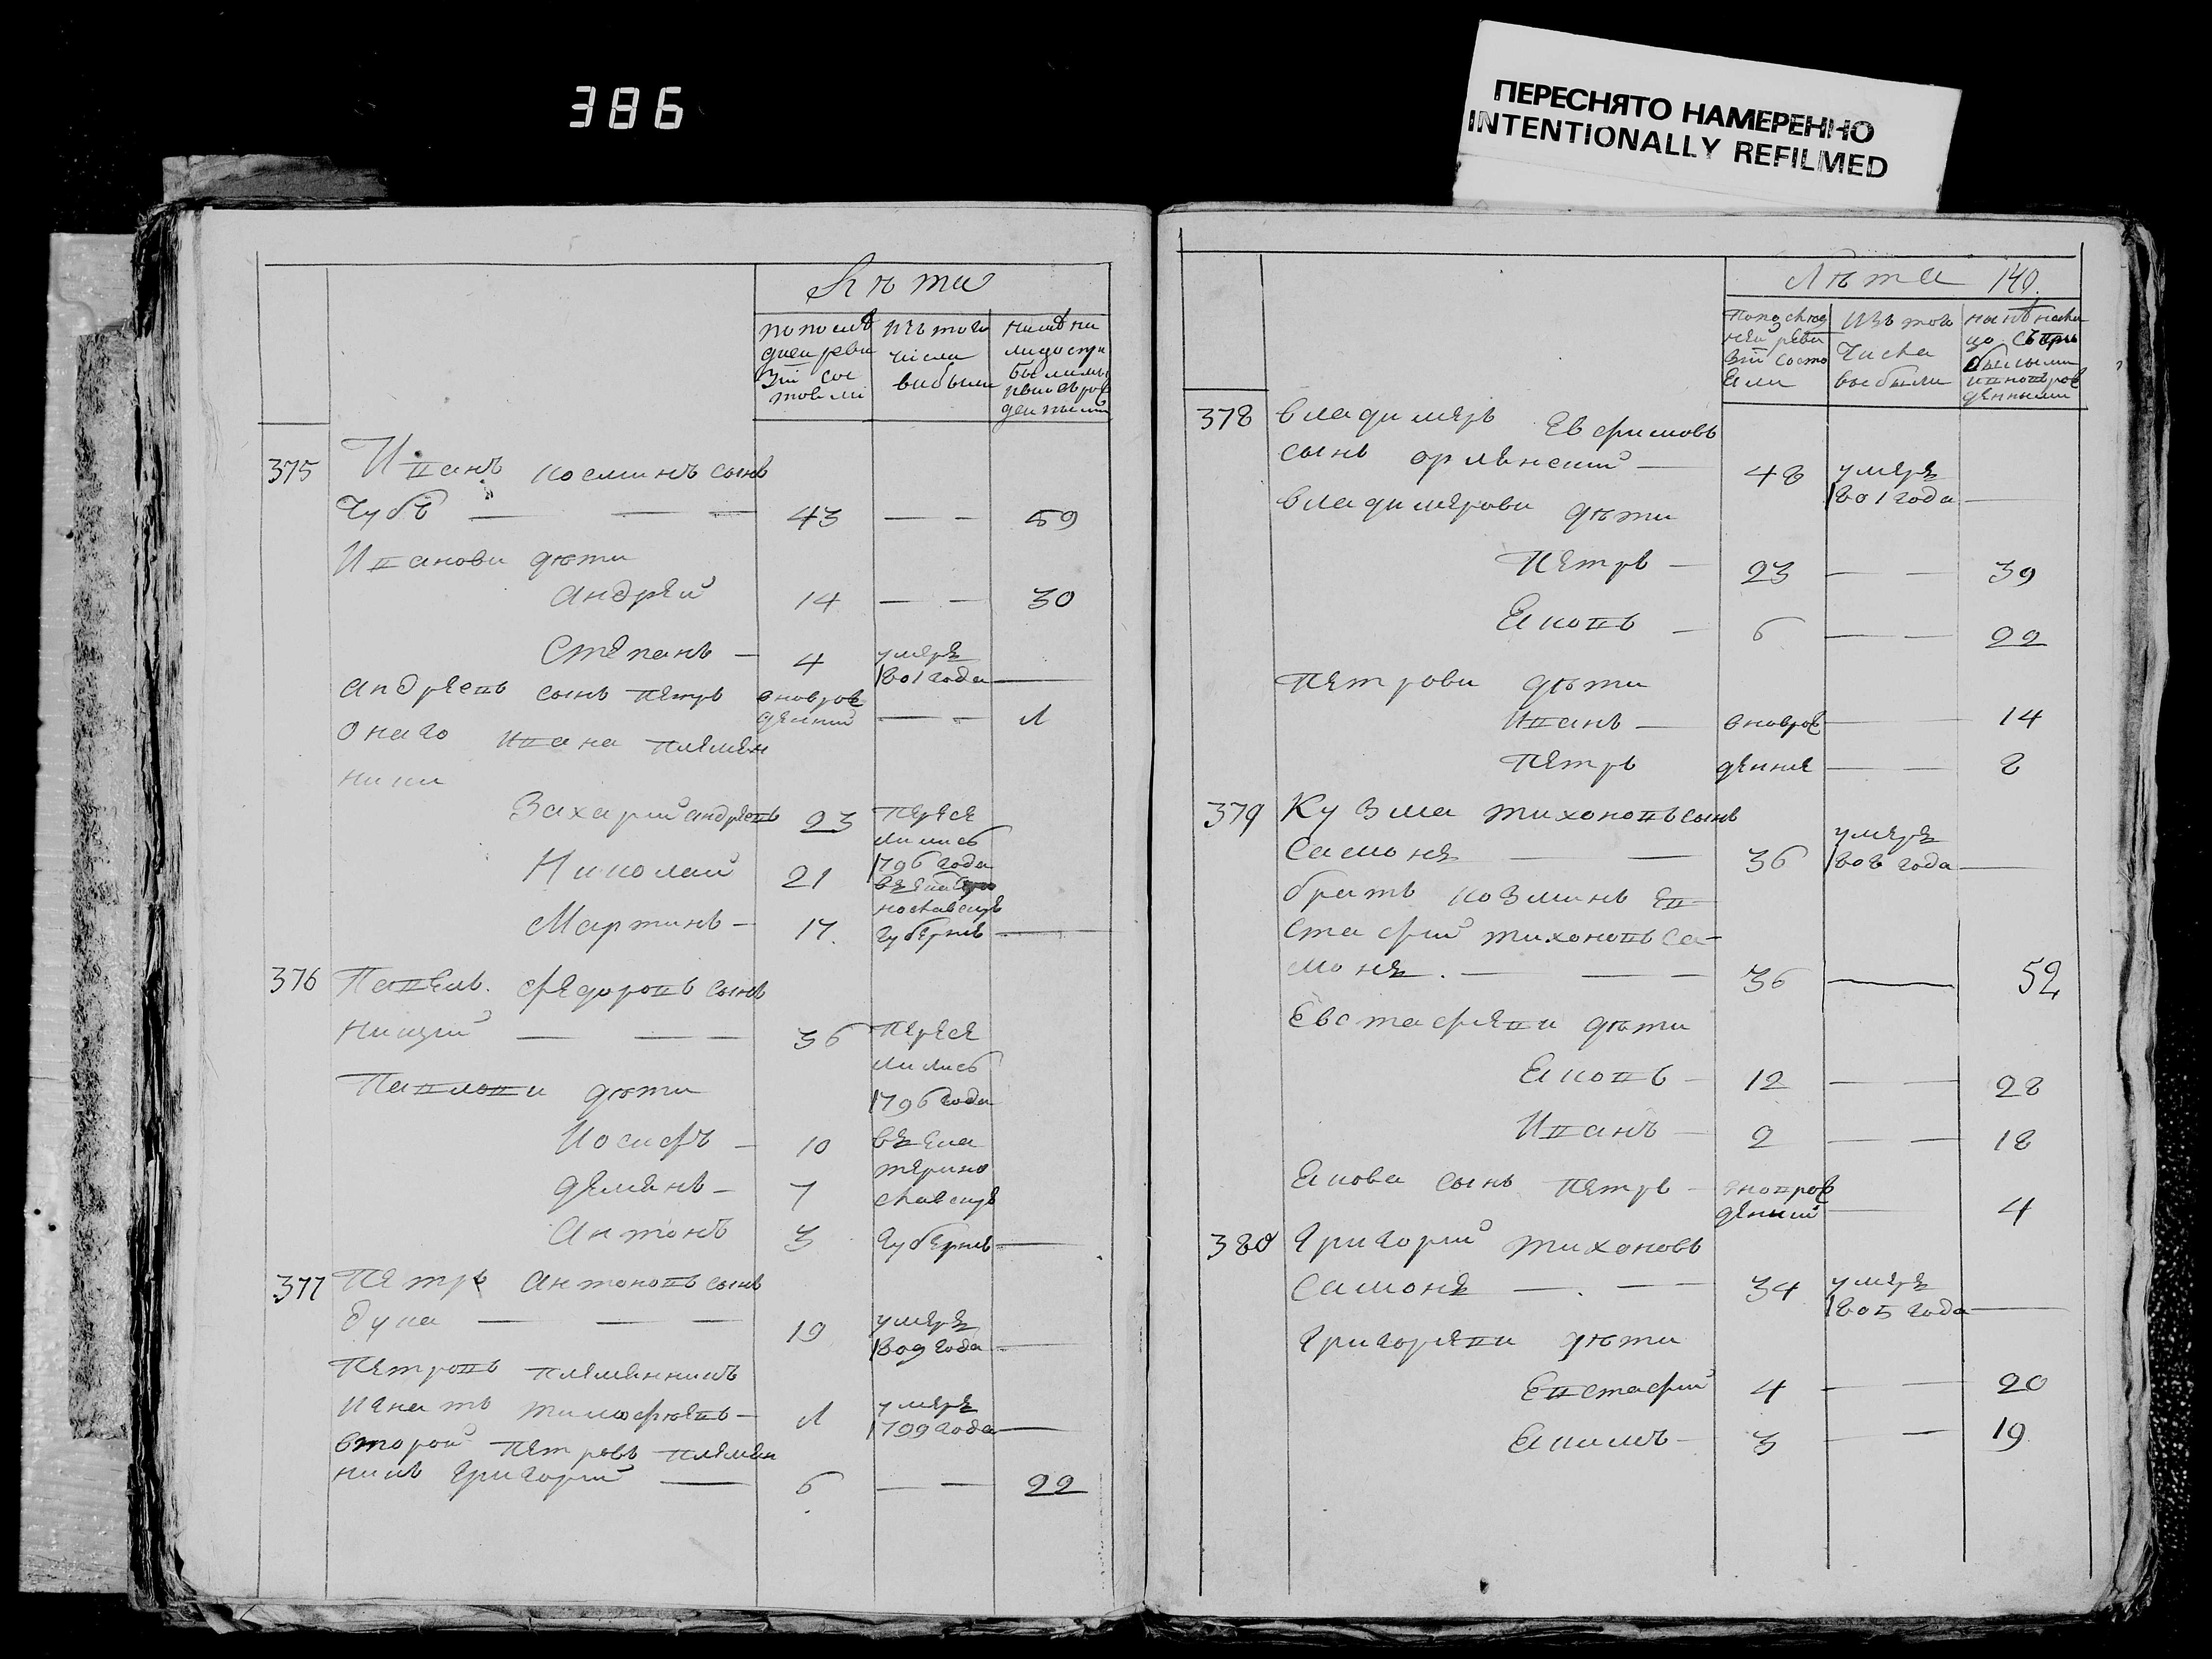 386
ПЕРЕСНЯТО НАМЕРЕННО
INTENTIONALLY REFILMED
Лѣта
по после
дней реви
зіи сос
тояли
изъ того
числа
выбыли
ныне на
лицо с при
былыми
и новорож
денными
375 Иванъ Косминъ сынъ
Чубъ — — — 43 — — 59
Ивановы дѣти
Андрей 14 — — 30
Степанъ — 4 умеръ
1801 года —
Андреевъ сынъ Петръ вноврож
денный — — 1
Онаго Ивана племян
ники
Захарий Андреевъ 23 пересе
лились
Николай 21 1796 года
въ Екатери
нославскую
Мартинъ — 17. губернию —
376 Павелъ Федоровъ сынъ
Нищий — — — 36 пересе
лились
Павловы дѣти 1796 года
Иосифъ — 10 въ Ека
терино
Демянъ — 7 славскую
Антонъ 3 губернию —
377 Петръ Антоновъ сынъ
Дука — — — 19 умеръ
1809 года —
Петровъ племянникъ
Игнатъ Тимофеевъ — 1 умеръ
1799 года —
Второй Петровъ племян
никъ Григорий — 6 — — 22
Лѣта 140.
По послед
ней реви
зіи состо
яли
Изъ того
числа
выбыли
ныне на ли
цо съ при
былыми
и новорож
денными
378 Владимеръ Евфимовъ
сынъ Орленский — 48 умеръ
1801 года —
Владимеровы дѣти
Петръ — 23 — — 39
Яковъ — 6 — — 22
Петровы дѣти
Иванъ — вноврож — 14
Петръ денные — — 8
379 Кузма Тихоновъ сынъ
Самоня — — 36 умеръ
1808 года —
братъ Козминъ Ев
стафий Тихоновъ Са-
моня. — — — 36 — 52
Евстафиевы дѣти
Яковъ — 12 — — 28
Иванъ — 2 — — 18
Якова сынъ Петръ — вноврож
денный — 4
380 Григорий Тихоновъ
Самоня — . — 34 умеръ
1805 года —
Григориевы дѣти
Евстафий 4 — — 20
Якимъ — 3 — — 19